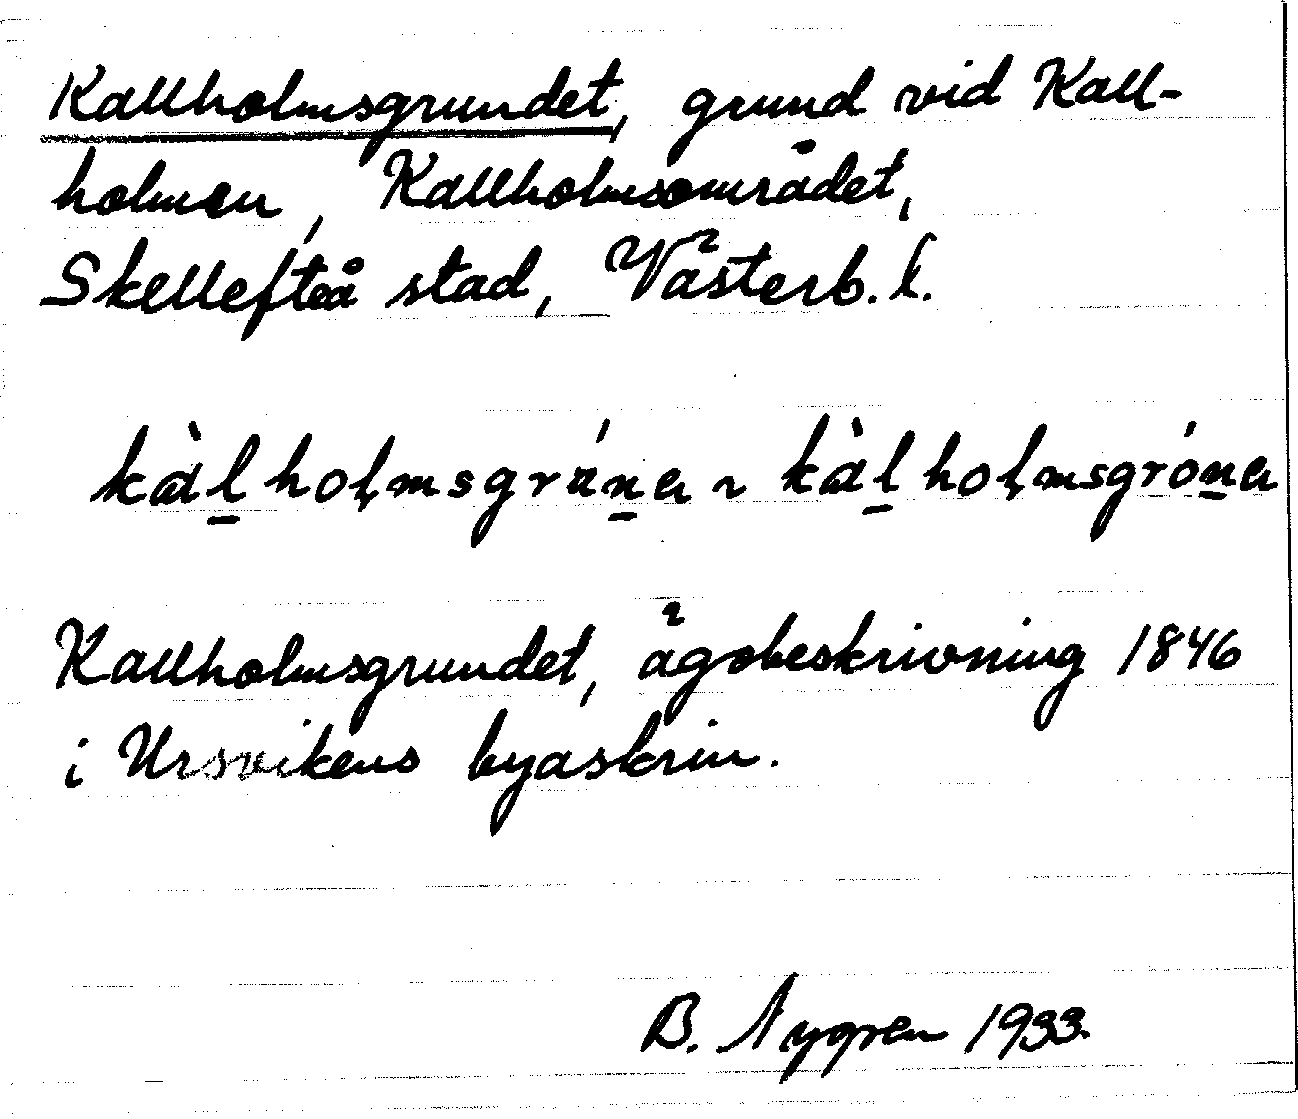 Kallholmsgrundet, grund vid Kall-
holmen, Kallholmsområdet,
Skellefteå stad, Västerb. l.
kàl̲hoļmsgrún̲a ~ kàl̲hoļmsgrón̲a
Kallholmsgrundet, ägobeskrivning 1846
i Ursvikens byaskrin.
B. Nygren 1933.